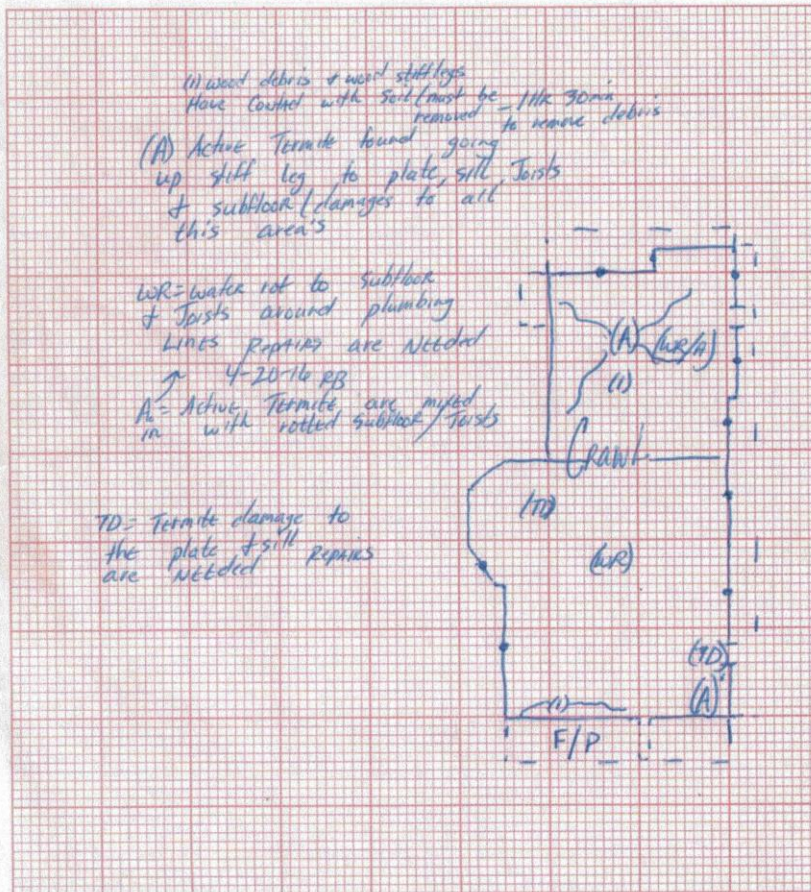 (1) wood debris & wood stiff legs
Have Contact with Soil (must be
removed - 1 HR 30 min
to remove debris
(A) Active Termite found going
up stiff leg to plate, sill, Joists
& subfloor (damages to all
this area's
WR = water rot to subfloor
& Joists around plumbing
Lines Repairs are Needed
4-20-16 RB
A = Active Termite are mixed
in with rotted subfloor/Joists
TD = Termite damage to
the plate & sill Repairs
are Needed
(A) (WR/A)
(1)
Crawl
(TD)
(WR)
(TD)
(A)
(1)
F/P